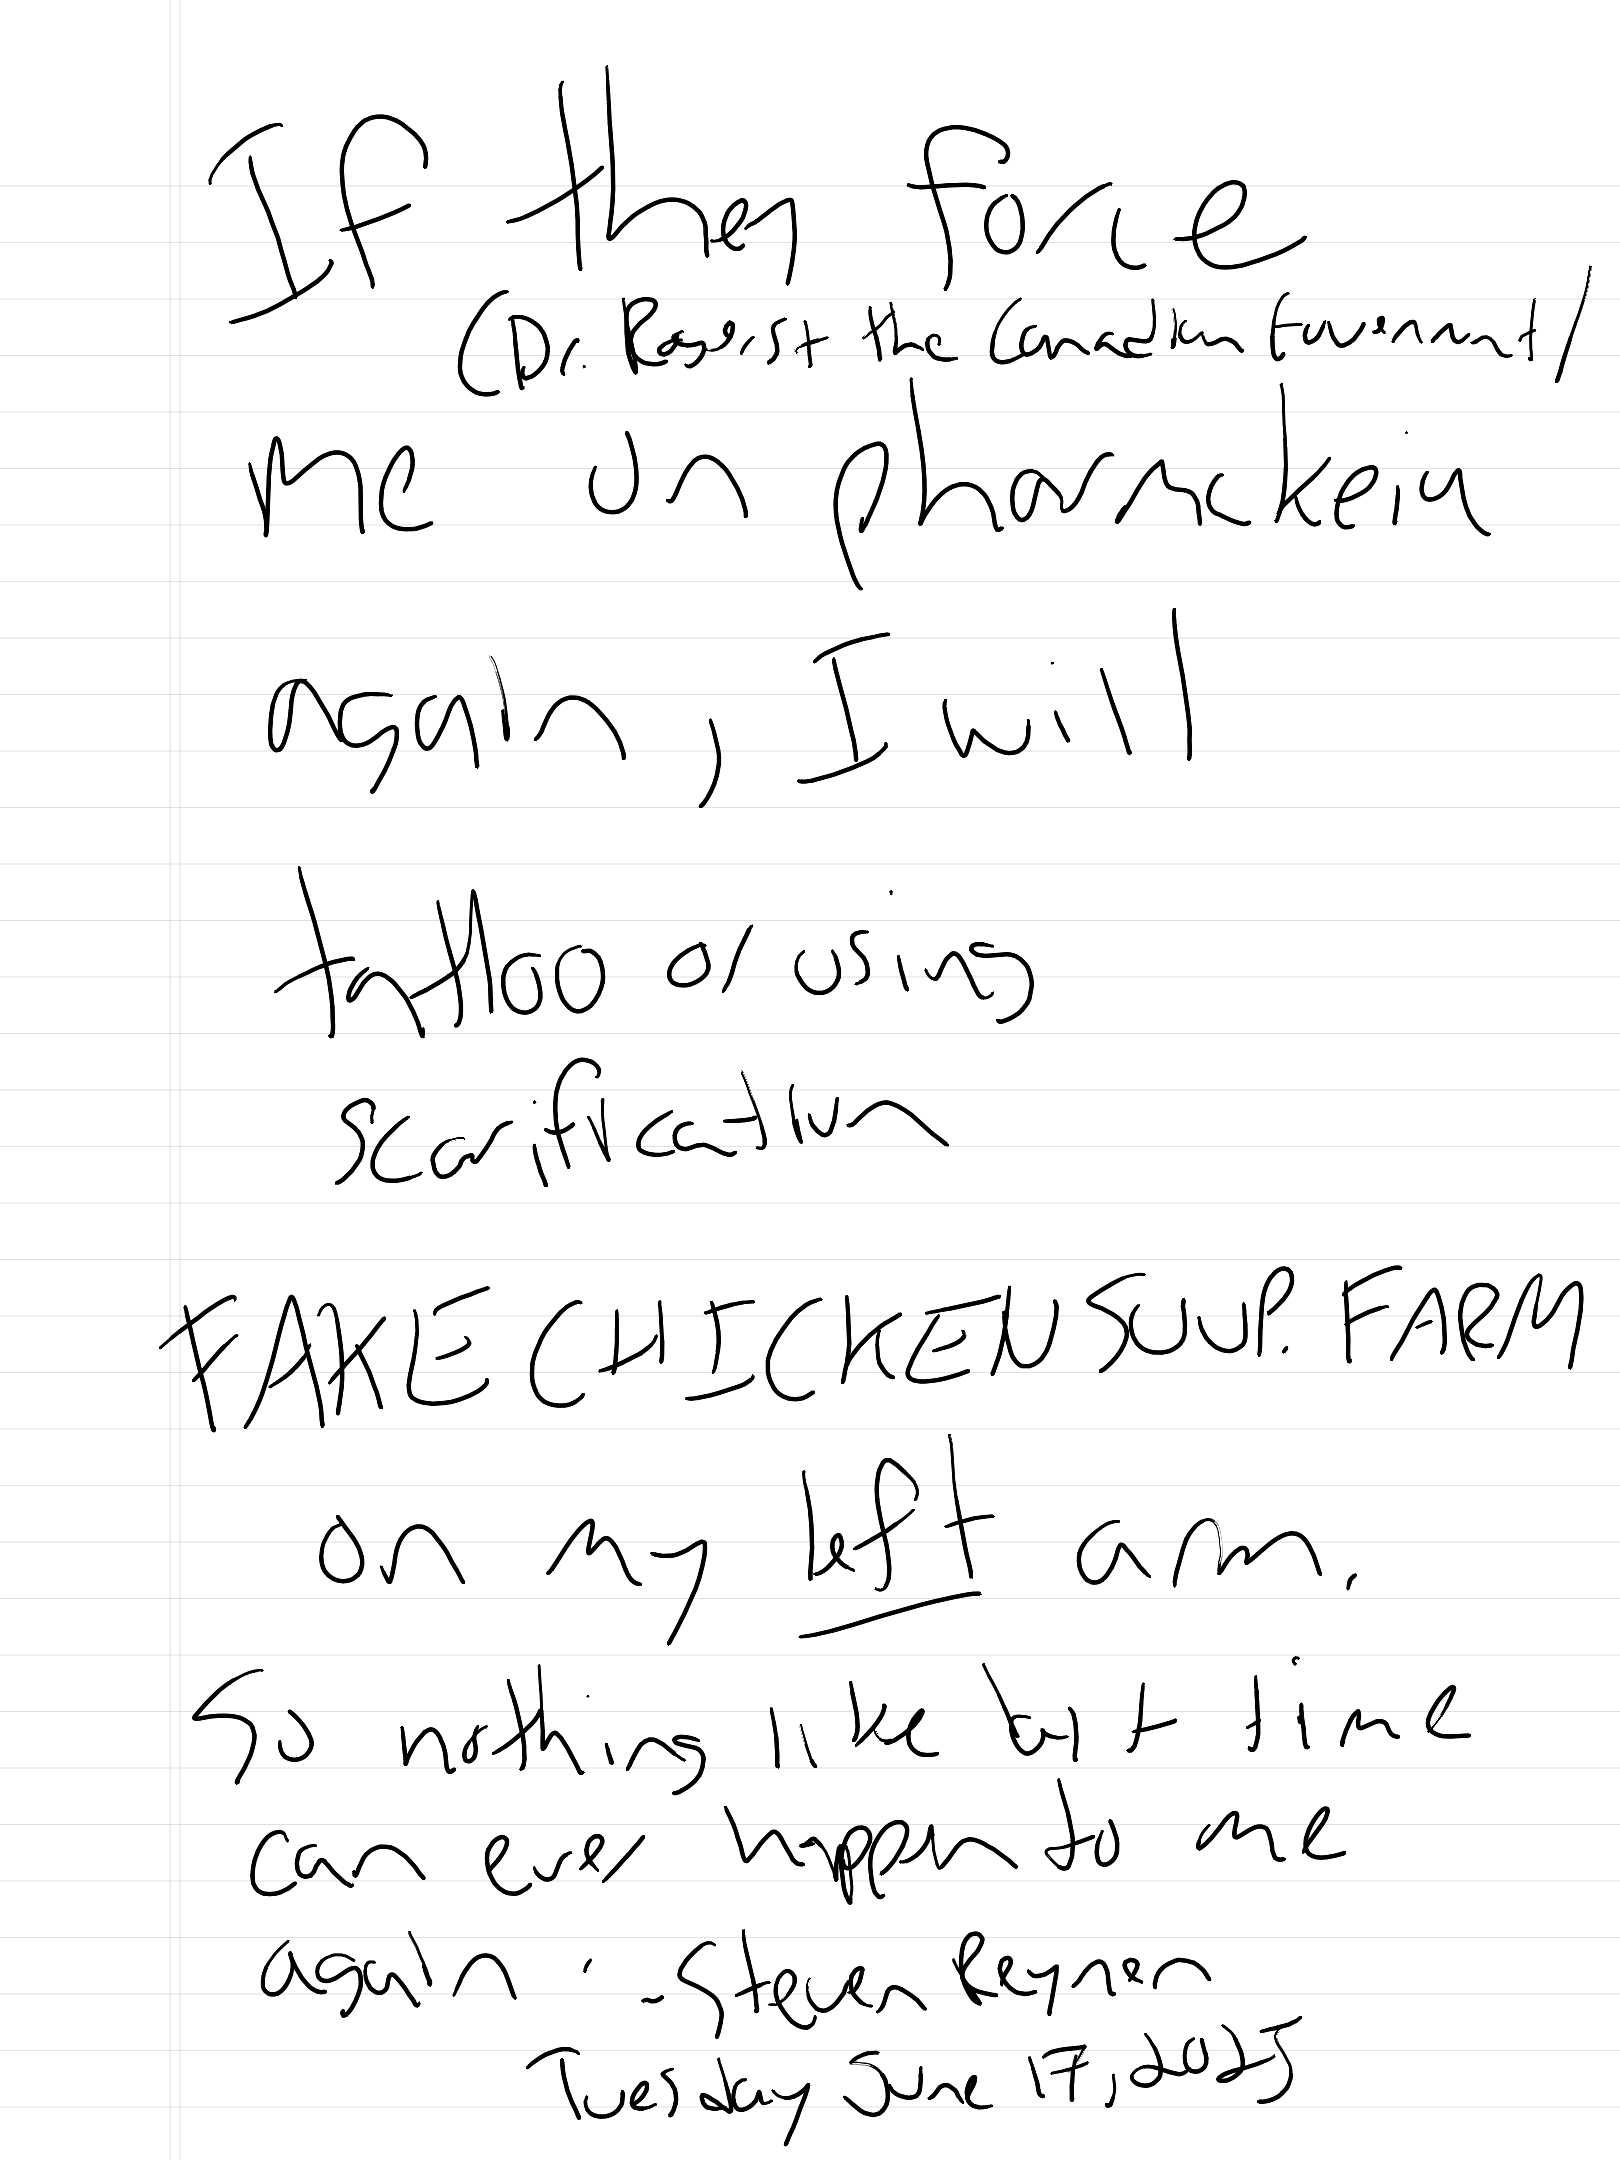 If they force
(Dr. Rogerist the Canadian Government/
me on pharmakeia
again, I will
tattoo or using
scarification
FAKECHICKENSOUP. FARM
on my left arm.
So nothing like last time
can ever happen to me
again. -Steven Reynen
Tuesday June 17, 2025